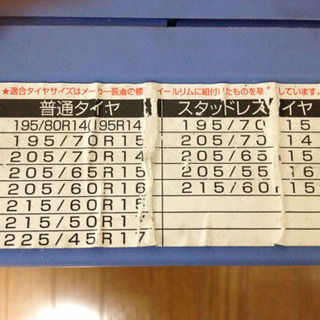 ★適合タイヤサイズはメーカー装着の標 イールリムに組付けたものを基 しています。
普通タイヤ スタッドレス イヤ
195/80R14(195R14 195/70 15
195/70R15 205/70 14
205/70R14 205/65 15
205/65R15 205/55 16
205/60R16 215/60 15
215/60R15
215/50R17
225/45R17